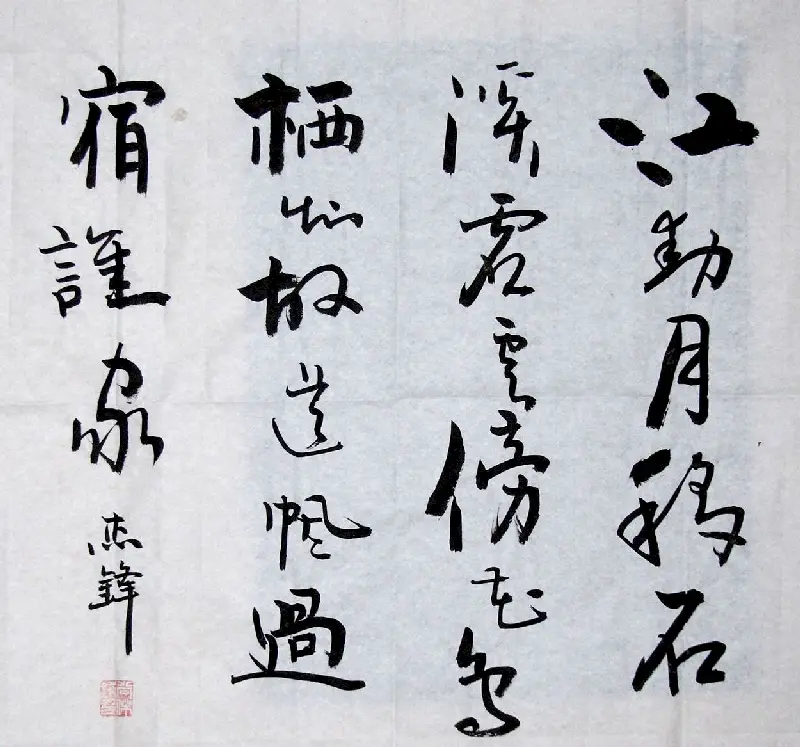 江動月移石
溪虚雲傍花鳥
栖知故道帆過
宿誰家
杰鋒